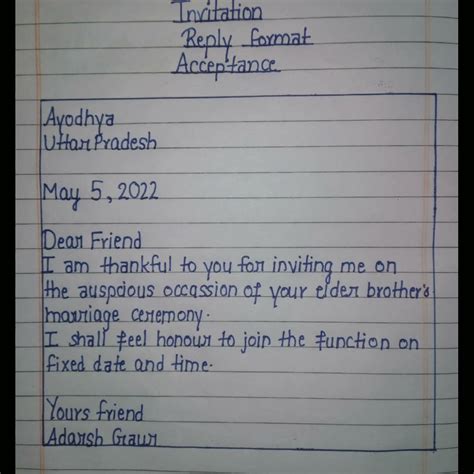 Invitation
Reply format
Acceptance
Ayodhya
Uttar Pradesh
May 5, 2022
Dear Friend
I am thankful to you for inviting me on
the auspcious occassion of your elder brother's
marriage ceremony.
I shall feel honour to join the function on
fixed date and time.
Yours friend
Adarsh Gaur